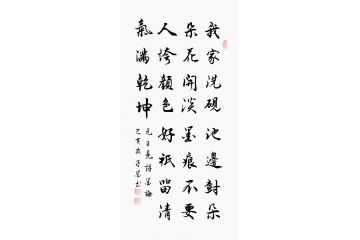 我家洗硯池邊樹朵
朵花開淡墨痕不要
人誇顏色好祇留清
氣滿乾坤
元王冕詩墨梅
己亥